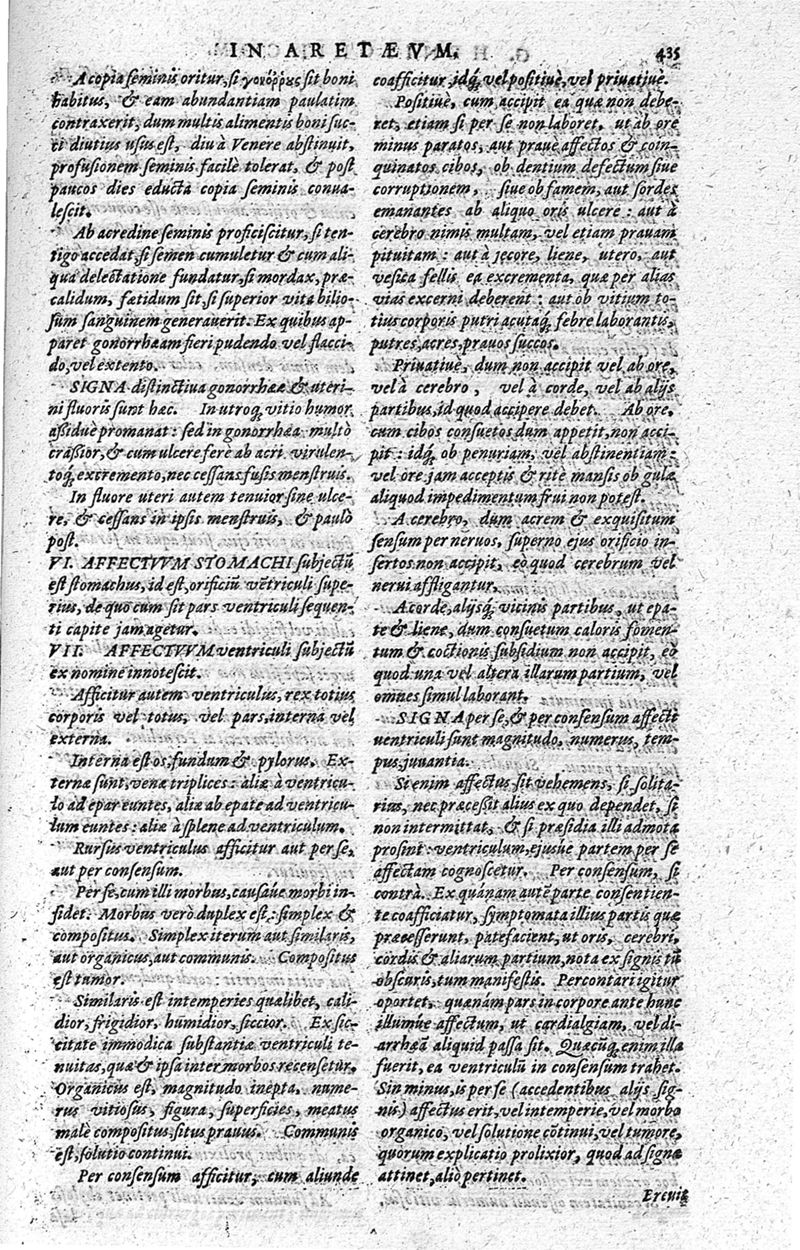 IN ARETÆVM. 435
A copia seminis oritur, si γονόῤῥους sit boni
habitus, & eam abundantiam paulatim
contraxerit, dum multis alimentis boni suc-
ci diutius usus est, diu à Venere abstinuit,
profusionem seminis facilè tolerat, & post
paucos dies educta copia seminis conva-
lescit.
Ab acredine seminis proficiscitur, si ten-
tigo accedat, si semen cumuletur & cum ali-
qua delectatione fundatur, si mordax, præ-
calidum, fœtidum sit, si superior vita bilio-
sum sanguinem generauerit. Ex quibus ap-
paret gonorrhœam fieri pudendo vel flacci-
do, vel extento.
SIGNA distinctiva gonorrhææ & uteri-
ni fluoris sunt hæc. In utroq́; vitio humor
aßiduè promanat: sed in gonorrhæa multò
craßior, & cum ulcere ferè ab acri virulen-
toq́; excremento, nec cessans fusis menstruis.
In fluore uteri autem tenuior sine ulce-
re, & cessans in ipsis menstruis, & paulò
post.
VI. AFFECTVVM STOMACHI subjectũ
est stomachus, id est, orificiũ vẽtriculi supe-
rius, de quo cum sit pars ventriculi sequen-
ti capite jam agetur.
VII. AFFECTVVM ventriculi subjectũ
ex nomine innotescit.
Afficitur autem ventriculus, rex totius
corporis vel totus, vel pars, interna vel
externa.
Interna est os, fundum & pylorus. Ex-
ternæ sunt, venæ triplices: aliæ à ventricu-
lo ad epar euntes, aliæ ab epate ad ventricu-
lum euntes: aliæ à splene ad ventriculum.
Rursus ventriculus afficitur aut per se,
aut per consensum.
Per se, cum illi morbus, causáve morbi in-
sidet. Morbus verò duplex est: simplex &
compositus. Simplex iterum aut similaris,
aut organicus, aut communis. Compositus
est tumor.
Similaris est intemperies quælibet, cali-
dior, frigidior, humidior, siccior. Ex sic-
citate immodica substantiæ ventriculi te-
nuitas, quæ & ipsa inter morbos recensetur.
Organicus est, magnitudo inepta, nume-
rus vitiosus, figura, superficies, meatus
malè compositus, situs prauus. Communis
est, solutio continui.
Per consensum afficitur, cum aliunde
coafficitur, idq́; vel positiuè, vel priuatiuè.
Positiuè, cum accipit ea quæ non debe-
ret, etiam si per se non laboret, ut ab ore
minus paratos, aut prauè affectos & coin-
quinatos cibos, ob dentium defectum siue
corruptionem, siue ob famem, aut sordes
emanantes ab aliquo oris ulcere: aut à
cerebro nimis multam, vel etiam prauam
pituitam: aut à jecore, liene, utero, aut
vesica fellis ea excrementa, quæ per alias
vias excerni deberent: aut ob vitium to-
tius corporis putri acutaq́; febre laborantis,
putres, acres, prauos succos.
Priuatiuè, dum non accipit vel ab ore,
vel à cerebro, vel à corde, vel ab alijs
partibus, id quod accipere debet. Ab ore,
cum cibos consuetos dum appetit, non acci-
pit: idq́; ob penuriam, vel abstinentiam:
vel ore jam acceptis & ritè mansis ob gulæ
aliquod impedimentum frui non potest.
A cerebro, dum acrem & exquisitum
sensum per neruos, superno ejus orificio in-
sertos non accipit, eò quod cerebrum vel
nerui affligantur.
A corde, alijsq́; vicinis partibus, ut epa-
te & liene, dum consuetum caloris fomen-
tum & coctionis subsidium non accipit, eò
quod una vel altera illarum partium, vel
omnes simul laborant.
SIGNA per se, & per consensum affecti
ventriculi sunt magnitudo, numerus, tem-
pus, juvantia.
Si enim affectus sit vehemens, si solita-
rius, nec præceßit alius ex quo dependet, si
non intermittat, & si præsidia illi admota
prosint: ventriculum, ejusúe partem per se
affectam cognoscetur. Per consensum, si
contrà. Ex quánam autẽ parte consentien-
te coafficiatur, symptomata illius partis quæ
præcesserunt, patefacient, ut oris, cerebri,
cordis & aliarum partium, nota ex signis tũ
obscuris, tum manifestis. Percontari igitur
oportet, quænam pars in corpore ante hunc
illumue affectum, ut cardialgiam, vel di-
arrhæã aliquid passa sit. Quæcũq́; enim illa
fuerit, ea ventriculũ in consensum trahet.
Sin minus, is per se (accedentibus alijs sig-
nis) affectus erit, vel intemperie, vel morbo
organico, vel solutione cõtinui, vel tumore,
quorum explicatio prolixior, quod ad signa
attinet, aliò pertinet.
Brevit